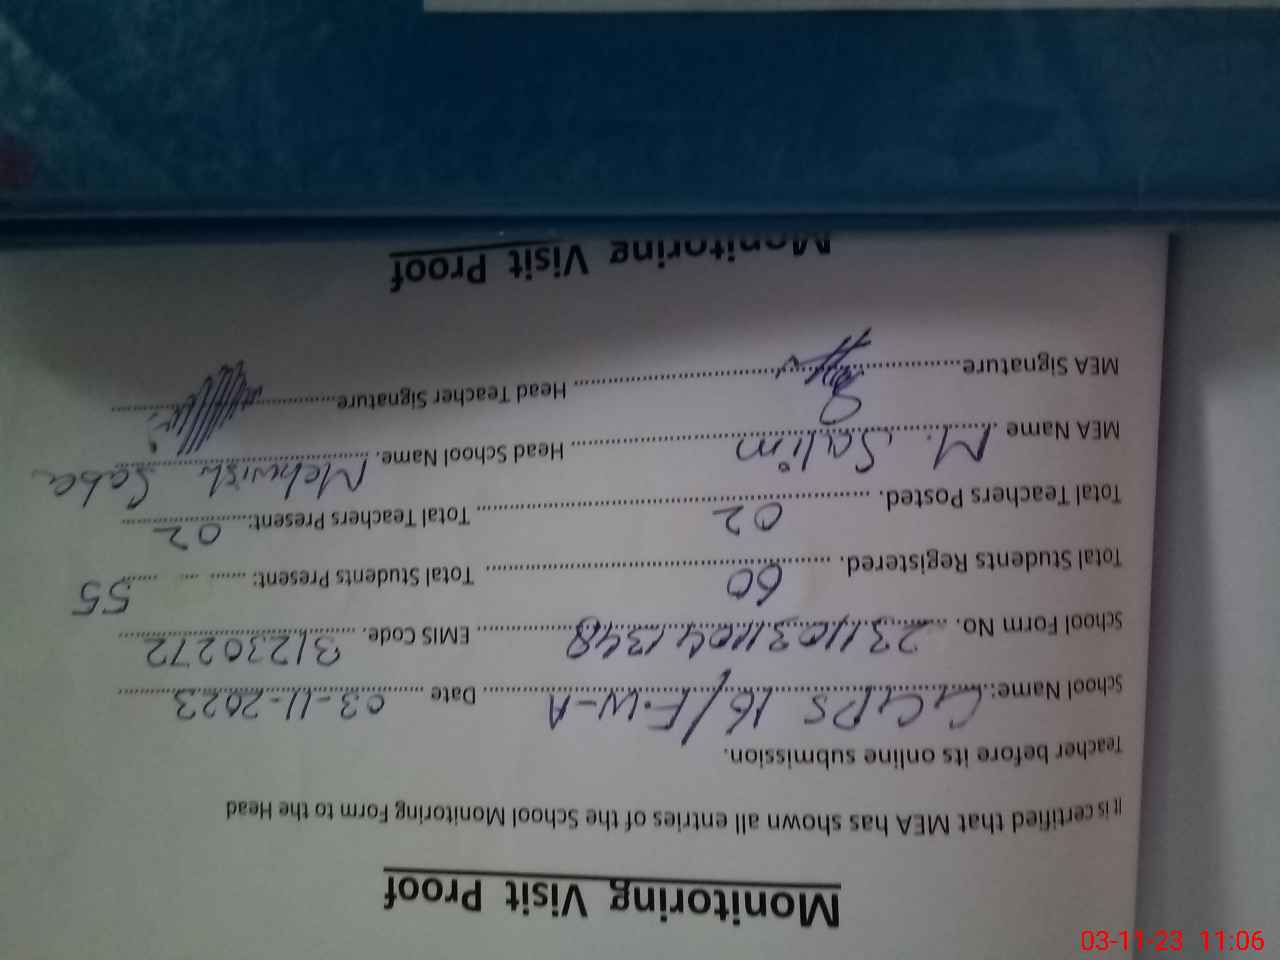 Monitoring Visit Proof
It is certified that MEA has shown all entries of the School Monitoring Form to the Head
Teacher before its online submission.
School Name: GGPS 16/F.W-A Date 03-11-2023
School Form No. 23110311041348 EMIS Code. 31230272
Total Students Registered. 60 Total Students Present: 55
Total Teachers Posted. 02 Total Teachers Present: 02
MEA Name M. Salim Head School Name. Mehwish Saba
MEA Signature Head Teacher Signature
Monitoring Visit Proof
03-11-23 11:06